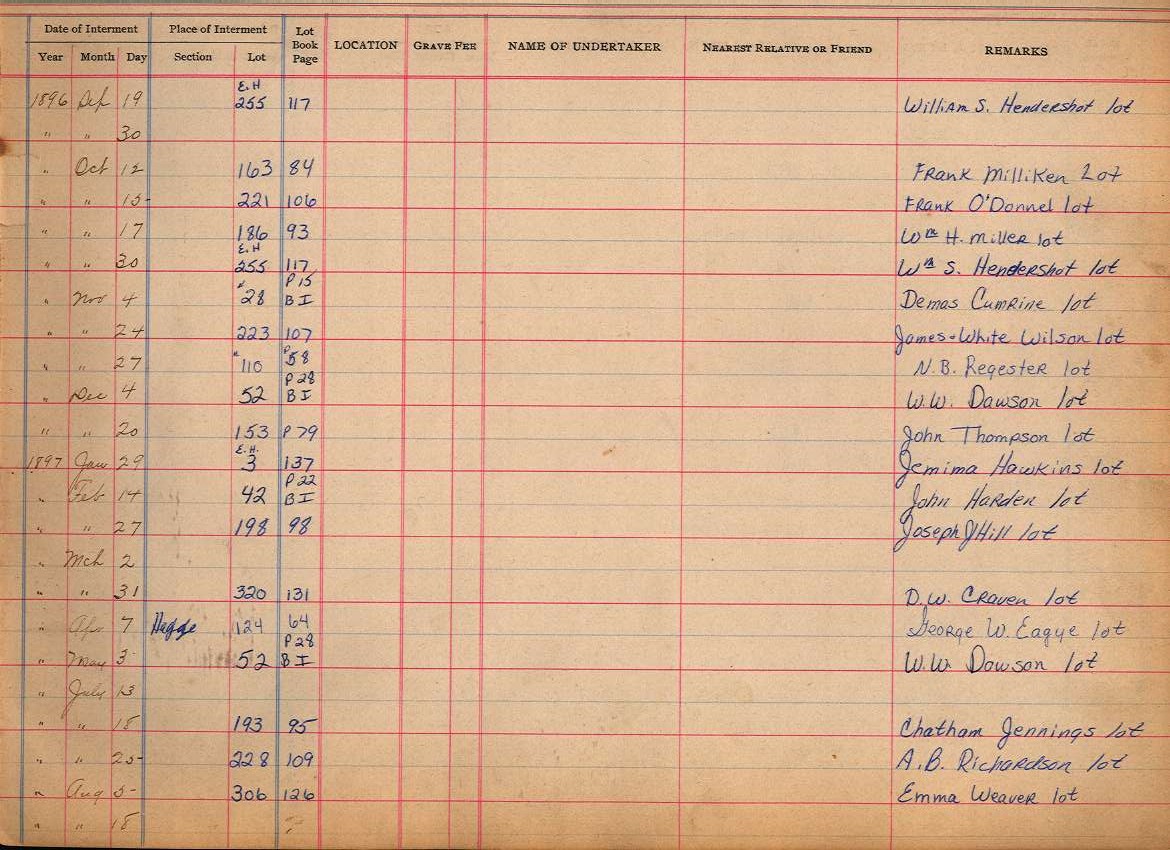 Date of Interment Place of Interment Lot Book Page LOCATION GRAVE FEE NAME OF UNDERTAKER NEAREST RELATIVE OR FRIEND REMARKS
Year Month Day Section Lot
1896 Sep 19 E.H 255 117 William S. Hendershot lot
" " 30
" Oct 12 163 84 Frank Milliken Lot
" " 15 221 106 Frank O'Donnel lot
" " 17 186 93 Wm H. Miller lot
" " 30 E.H 255 117 Wm S. Hendershot lot
" Nov 4 " 28 P 15 B I Demas Cumrine lot
" " 24 223 107 James White Wilson lot
" " 27 " 110 P 58 N.B. Regester lot
" Dec 4 52 P 28 B I W.W. Dawson lot
" " 20 153 P 79 John Thompson lot
1897 Jan 29 E.H. 3 137 Jemima Hawkins lot
" Feb 14 42 P 22 B I John Harden lot
" " 27 198 98 Joseph J Hill lot
" Mch 2
" " 31 320 131 D.W. Craven lot
" Apr 7 124 64 George W. Eagye lot
" May 3 52 P 28 B I W.W. Dowson lot
" July 13
" " 18 193 95 Chatham Jennings lot
" " 25 228 109 A.B. Richardson lot
" Aug 5 306 126 Emma Weaver lot
" " 18 ?